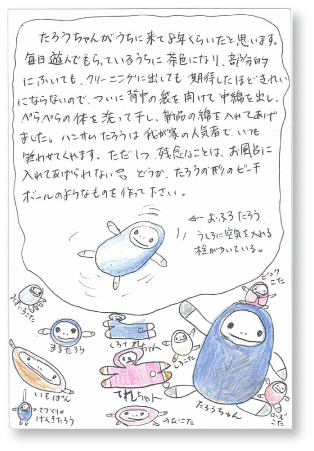 たろうちゃんがうちに来て2年くらいだと思います。
毎日遊んでもらっているうちに茶色になり、部分的
にふいても、クリーニングに出しても期待したほどきれい
にならないので、ついに背中の袋を開けて中綿を出し、
ぺらぺらの体を洗って干し、新品の綿を入れてあげ
ました。ハンサムたろうは我が家の人気者で、いつも
笑わせてくれます。ただ1つ、残念なことは、お風呂に
入れてあげられない
どうか、たろうの形のビーチ
ボールのようなものを作って下さい。
← おふろたろう
うしろに空気を入れる
栓がついている。
まるたろう
くろてれちゃん
てれちゃん
しろこた
ピンクこた
たろうちゃん
いもぱん
てづくり
げんきたろう
のむにこた